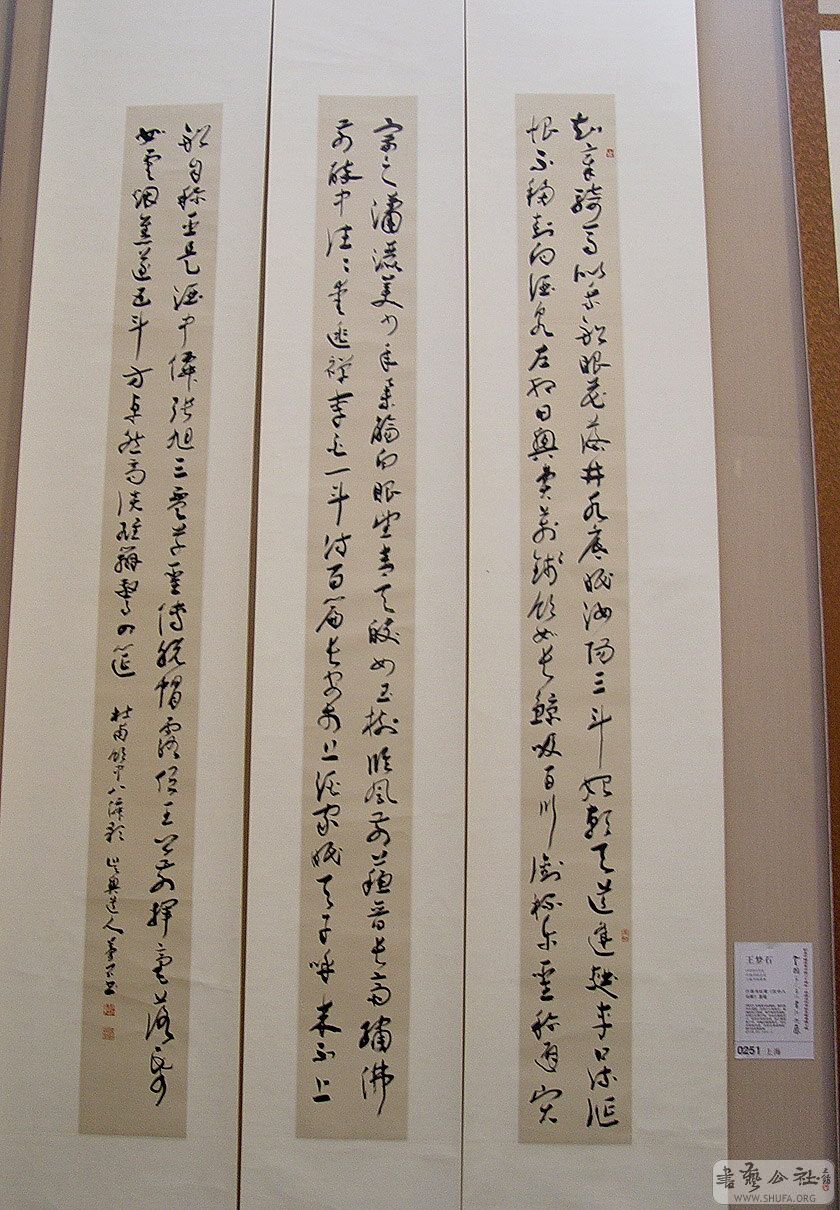 知章騎馬似乘船眼花落井水底眠汝陽三斗始朝天道逢麴車口流涎
恨不移封向酒泉左相日興費萬錢飲如長鯨吸百川銜杯樂聖稱避賢
宗之瀟灑美少年舉觴白眼望青天皎如玉樹臨風前蘇晉長齋繡佛
前醉中往々愛逃禪李白一斗詩百篇長安市上酒家眠天子呼來不上
船自稱臣是酒中僊張旭三盃草聖傳脫帽露頂王公前揮毫落紙
如雲烟焦遂五斗方卓然高談雄辯驚四筵 杜甫飲中八僊歌 吳興道人夢石書
王梦石
0251 上海
書藝公社
WWW.SHUFA.ORG